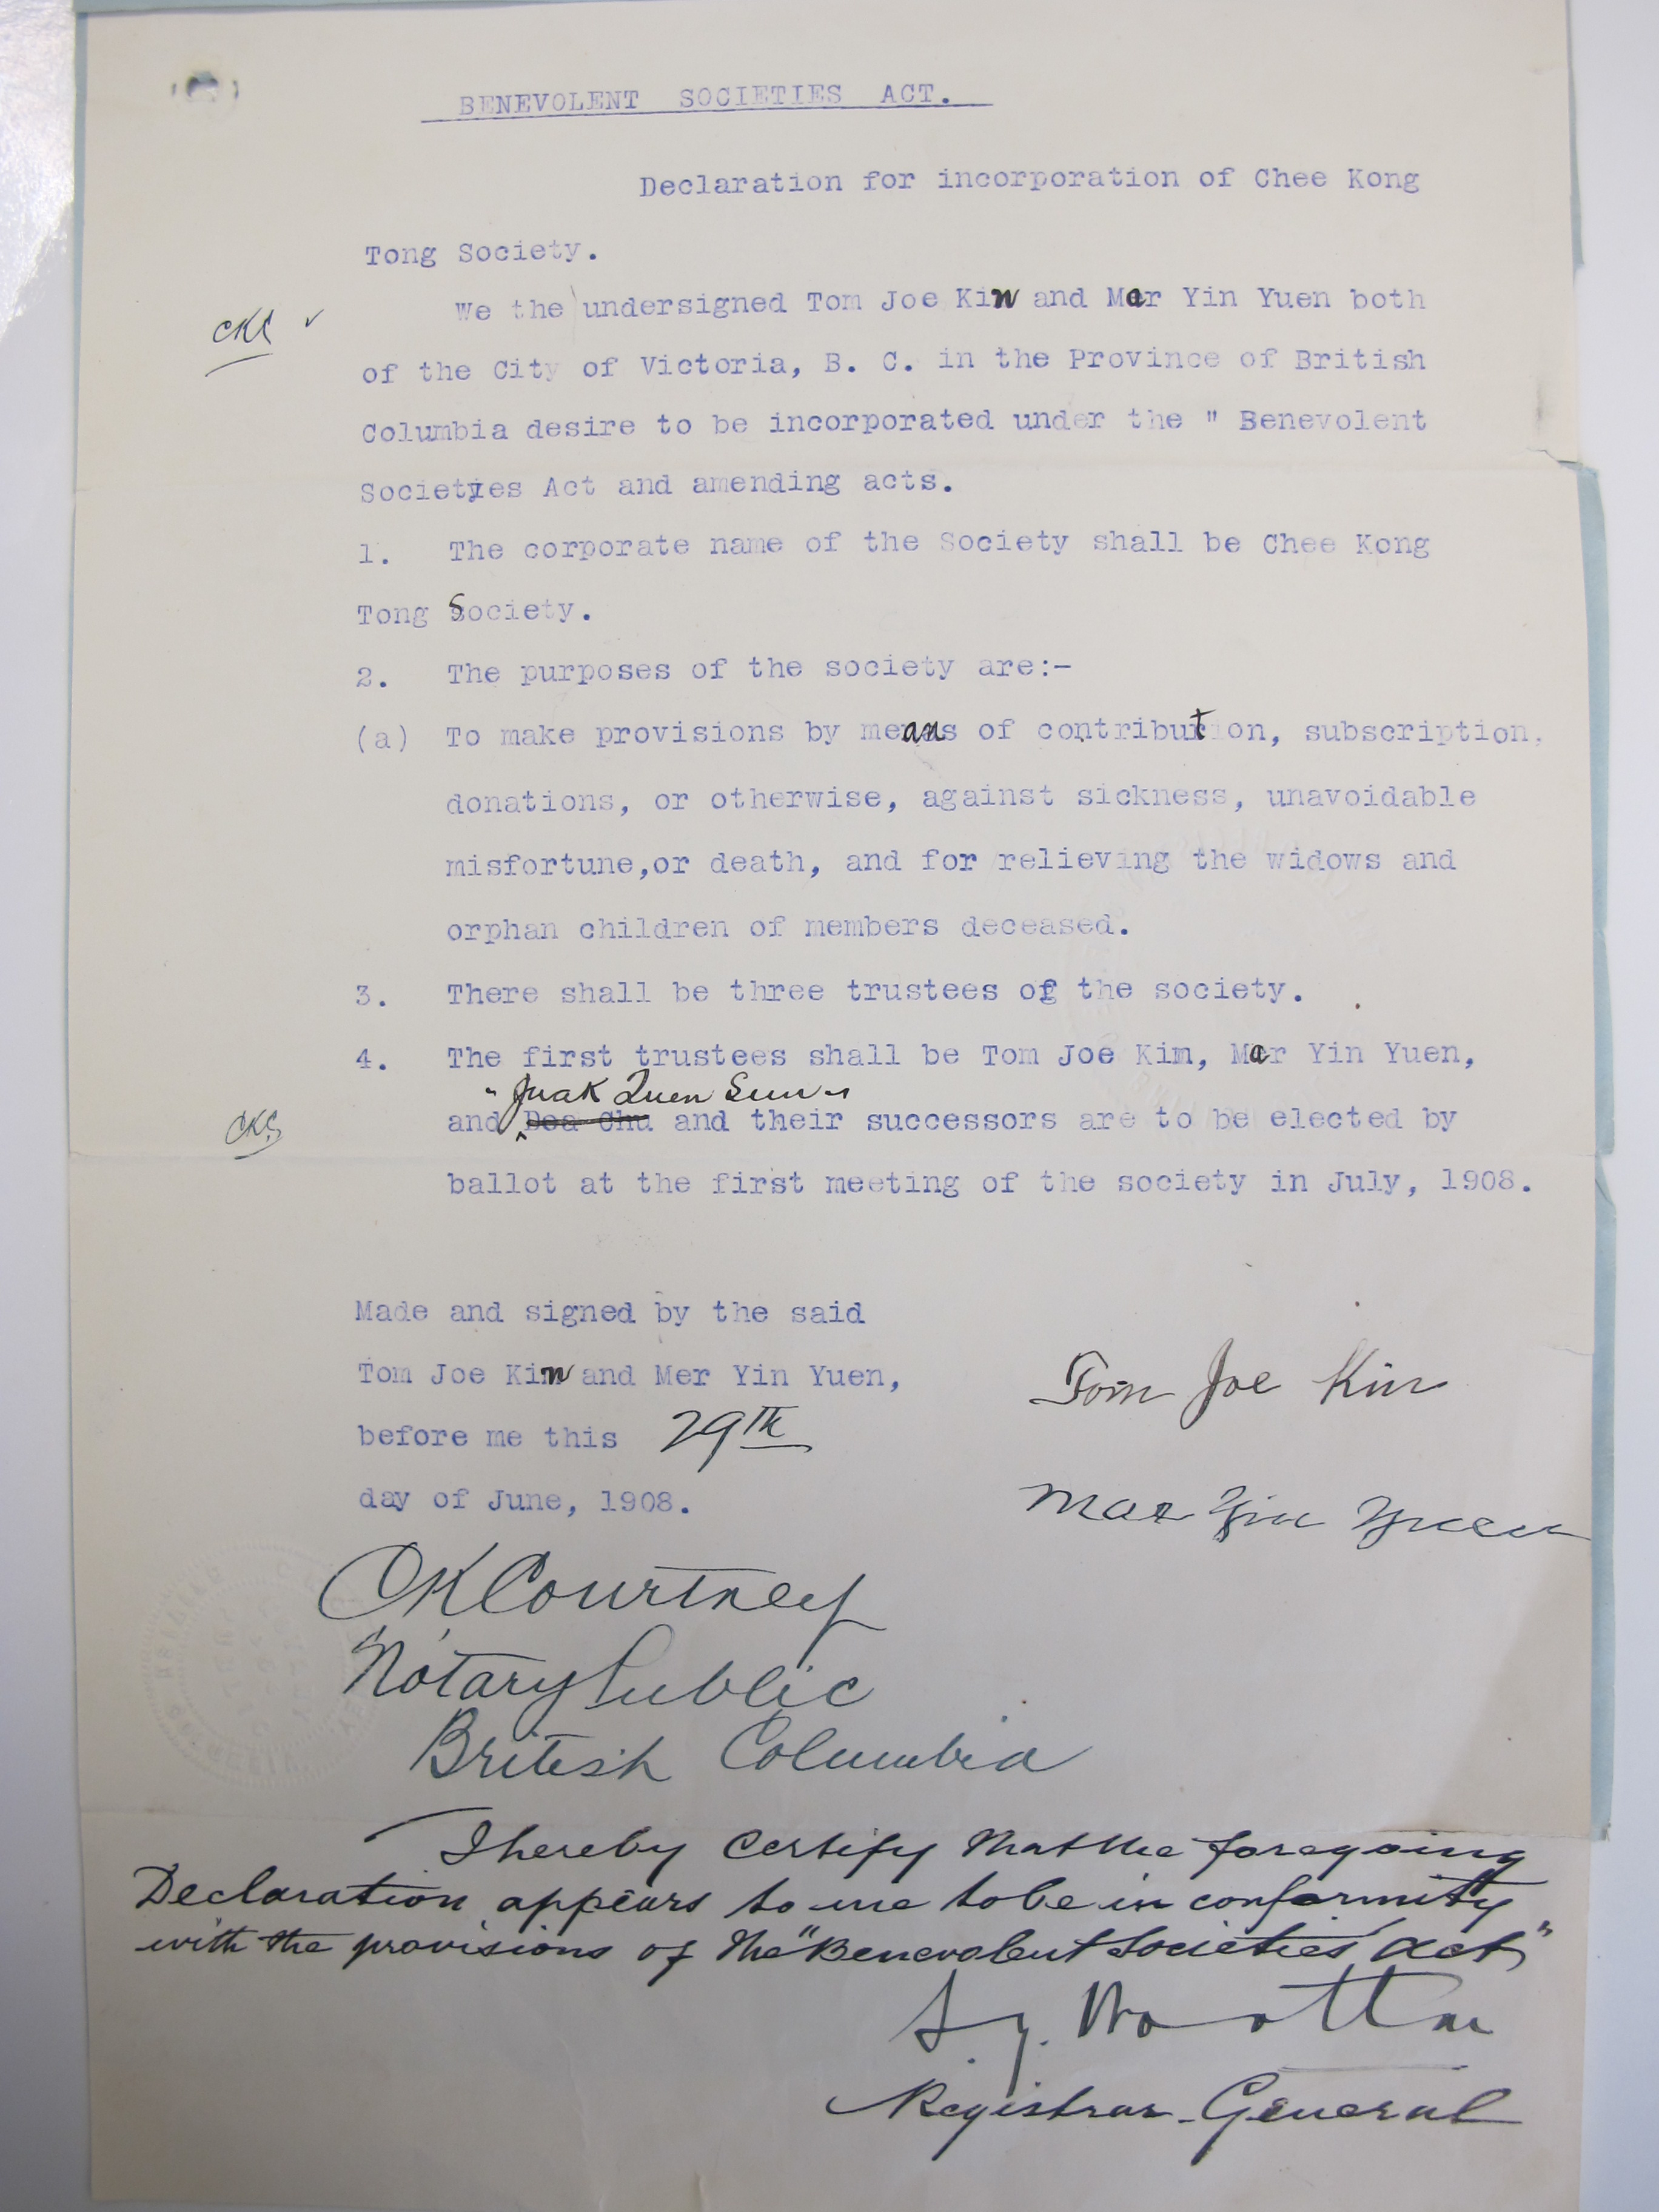 BENEVOLENT SOCIETIES ACT.
Declaration for incorporation of Chee Kong
Tong Society.
CKS ✓ We the undersigned Tom Joe Kin and Mar Yin Yuen both
of the City of Victoria, B. C. in the Province of British
Columbia desire to be incorporated under the " Benevolent
Societies Act and amending acts.
1. The corporate name of the Society shall be Chee Kong
Tong Society.
2. The purposes of the society are:-
(a) To make provisions by means of contribution, subscription,
donations, or otherwise, against sickness, unavoidable
misfortune,or death, and for relieving the widows and
orphan children of members deceased.
3. There shall be three trustees of the society.
4. The first trustees shall be Tom Joe Kim, Mar Yin Yuen,
" Juak Quen Sun "
CKS and Dea Chu and their successors are to be elected by
ballot at the first meeting of the society in July, 1908.
Made and signed by the said
Tom Joe Kin and Mer Yin Yuen,
before me this 29th
day of June, 1908.
Tom Joe Kin
Mar Yin Yuen
Courtney
Notary Public
British Columbia
I hereby certify that the foregoing
Declaration appears to me to be in conformity
with the provisions of the "Benevolent Societies Act"
S. Y. Wootton
Registrar-General